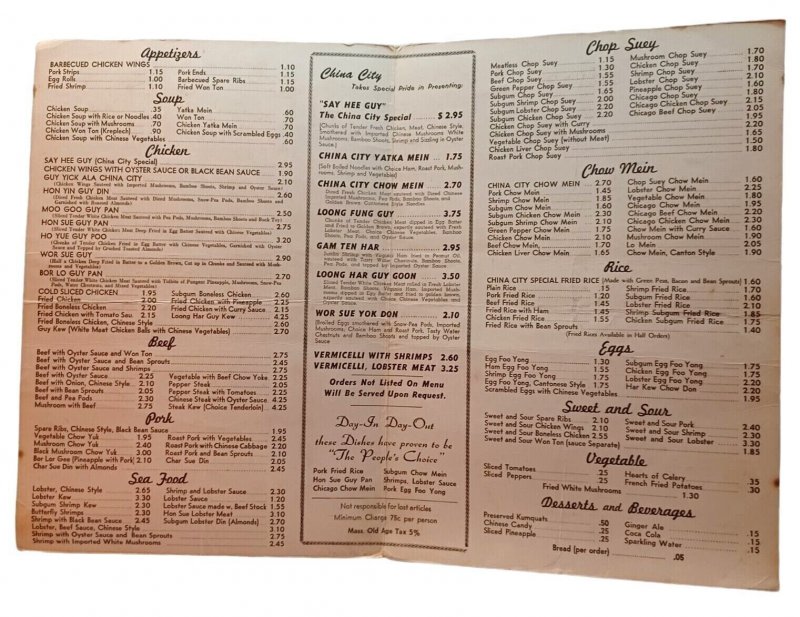 Appetizers
BARBECUED CHICKEN WINGS 1.10
Pork Strips 1.15 Pork Ends 1.15
Egg Rolls 1.00 Barbecued Spare Ribs 1.15
Fried Shrimp 1.10 Fried Won Ton 1.00
Soup
Chicken Soup .35 Yatka Mein .60
Chicken Soup with Rice or Noodles .40 Won Ton .70
Chicken Soup with Mushrooms .70 Chicken Yatka Mein .70
Chicken Won Ton (Kreplach) .90 Chicken Soup with Scrambled Eggs .40
Chicken Soup with Chinese Vegetables .60
Chicken
SAY HEE GUY (China City Special) 2.95
CHICKEN WINGS WITH OYSTER SAUCE OR BLACK BEAN SAUCE 1.90
GUY YICK ALA CHINA CITY 2.10
(Chicken Wings Sauteed with Imported Mushrooms, Bamboo Shoots, Shrimp and Oyster Sauce)
HON YIN GUY DIN
Diced Fresh Chicken Meat Sauteed with Diced Mushrooms, Snow-Pea Pods, Bamboo Shoots and
Garnished with Roasted Almonds)
MOO GOO GUY PAN 2.50
(Sliced Tender White Chicken Meat Sauteed with Pea Pods, Mushrooms, Bamboo Shoots and Bock Toy)
HON SUE GUY PAN
(Sliced Tender White Chicken Meat Deep Fried in Egg Batter Sauteed with Chinese Vegetables)
HO YUE GUY POO 3.20
(Chunks of Tender Chicken Fried in Egg Batter with Chinese Vegetables, Garnished with Oyster
Sauce and Topped by Crushed Toasted Almonds)
WOR SUE GUY 2.90
(Half a Chicken Deep Fried in Batter to a Golden Brown, Cut up in Chunks and Seasoned with Mushrooms and Vegetables)
BOR LO GUY PAN 2.70
(Sliced Tender White Chicken Meat Sauteed with Tidbits of Pungent Pineapple, Mushrooms, Snow-Pea
Pods, Water Chestnuts, and Mixed Vegetables)
COLD SLICED CHICKEN 1.95 Subgum Boneless Chicken 2.60
Fried Chicken 2.00 Fried Chicken with Pineapple 2.25
Fried Boneless Chicken 2.20 Fried Chicken with Curry Sauce 2.15
Fried Chicken with Tomato Sau. 2.15 Loong Har Guy Kew 4.25
Fried Boneless Chicken, Chinese Style 2.60
Guy Kew (White Meat Chicken Balls with Chinese Vegetables) 2.70
Beef
Beef with Oyster Sauce and Won Ton 2.75
Beef with Oyster Sauce and Bean Sprouts 2.45
Beef with Oyster Sauce and Shrimps 2.75
Beef with Oyster Sauce 2.25 Vegetable with Beef Chow Yoke 2.25
Beef with Onion, Chinese Style 2.10 Pepper Steak 2.05
Beef with Bean Sprouts 2.05 Pepper Steak with Tomatoes 2.25
Beef and Pea Pods 2.30 Chinese Steak with Oyster Sauce 4.25
Mushroom with Beef 2.75 Steak Kew (Choice Tenderloin) 4.25
Pork
Spare Ribs, Chinese Style, Black Bean Sauce 1.95
Vegetable Chow Yuk 1.95 Roast Pork with Vegetables 2.45
Mushroom Chow Yuk 2.40 Roast Pork with Chinese Cabbage 2.20
Black Mushroom Chow Yuk 3.00 Roast Pork with Bean Sprouts 2.20
Bor Lor Gee (Pineapple with Pork) 2.10 Char Sue Din 2.05
Char Sue Din with Almonds 2.45
Sea Food
Lobster, Chinese Style 2.65 Shrimp and Lobster Sauce 2.30
Lobster Kew 3.30 Lobster Sauce 1.20
Subgum Shrimp Kew 2.30 Lobster Sauce made w. Beef Stock 1.55
Butterfly Shrimps 2.30 Hon Sue Lobster Meat 3.10
Shrimp with Black Bean Sauce 2.45 Subgum Lobster Din (Almonds) 2.70
Lobster, Beef Sauce, Chinese Style 3.10
Shrimp with Oyster Sauce and Bean Sprouts 2.75
Shrimp with Imported White Mushrooms 2.45
China City
Takes Special Pride in Presenting:
"SAY HEE GUY"
The China City Special $ 2.95
(Chunks of Tender Fresh Chicken, Meat, Chinese Style,
Smothered with Imported Chinese Mushrooms White
Mushrooms, Bamboo Shoots, Shrimp and Sizzling in Oyster
Sauce)
CHINA CITY YATKA MEIN 1.75
(Soft Boiled Noodles with Choice Ham, Roast Pork, Mushrooms, Shrimp and Vegetables)
CHINA CITY CHOW MEIN 2.70
(Diced Fresh Chicken Meat sauteed with Diced Chinese
Mushrooms, Pea Pods, Bamboo Shoots and
Golden Brown Guttormsse Style Noodles)
LOONG FUNG GUY 3.75
Chunks of Tender Chicken dipped in Egg Batter and
Fried to Golden Brown, expertly sauteed with Fresh
Lobster Meat, Choice Chinese Vegetables, Bamboo Shoots,
Pea Pods, and Oyster Sauce)
GAM TEN HAR 2.95
Jumbo Shrimp with Virginia Ham Fried in Peanut Oil,
sauteed with Tasty Willer Chestnuts, Bamboo Shoots, Pea
Pods, and topped by imported Oyster Sauce
LOONG HAR GUY GOON 3.50
Sliced Tender White Chicken Meat rolled in Fresh Lobster
Meat, Bamboo Shoots, Virginia Ham, Imported Mushrooms
dipped in Egg Batter and fried to golden brown,
expertly sauteed with Choice Chinese Vegetables, and
Oyster Sauce)
WOR SUE YOK DON 2.10
(Broiled Eggs smothered with Snow-Pea Pods, Imported
Mushrooms, Choice Ham and Roast Pork, Tasty Water
Chestnuts and Bamboo Shoots and topped by Oyster
Sauce)
VERMICELLI WITH SHRIMPS 2.60
VERMICELLI, LOBSTER MEAT 3.25
Orders Not Listed On Menu
Will Be Served Upon Request.
Day-In Day-Out
these Dishes have proven to be
"The People's Choice"
Pork Fried Rice Subgum Chow Mein
Hon Sue Guy Pan Shrimps, Lobster Sauce
Chicago Chow Mein Pork Egg Foo Yong
Not responsible for lost articles
Minimum Charge 75c per person
Mass. Old Age Tax 5%
Chop Suey
Meatless Chop Suey 1.15 Mushroom Chop Suey 1.70
Pork Chop Suey 1.30 Chicken Chop Suey 1.80
Beef Chop Suey 1.55 Shrimp Chop Suey 1.70
Green Pepper Chop Suey 1.65 Lobster Chop Suey 2.10
Subgum Chop Suey 1.45 Pineapple Chop Suey 1.60
Subgum Shrimp Chop Suey 2.00 Chicago Chop Suey 1.80
Subgum Lobster Chop Suey 2.20 Chicago Chicken Chop Suey 2.15
Subgum Chicken Chop Suey 2.20 Chicago Beef Chop Suey 2.05
Chicken Chop Suey with Curry 1.95
Chicken Chop Suey with Mushrooms 2.10
Vegetable Chop Suey (without Meat) 1.65
Chicken Liver Chop Suey 1.50
Roast Pork Chop Suey 1.80
Chow Mein
CHINA CITY CHOW MEIN 2.70 Chop Suey Chow Mein 1.60
Pork Chow Mein 1.45 Lobster Chow Mein 2.25
Shrimp Chow Mein 1.85 Vegetable Chow Mein 1.80
Subgum Chow Mein 1.60 Chicago Chow Mein 1.95
Subgum Chicken Chow Mein 2.30 Chicago Beef Chow Mein 2.20
Subgum Shrimp Chow Mein 2.10 Chicago Chicken Chow Mein 2.30
Green Pepper Chow Mein 1.75 Chow Mein with Curry Sauce 1.60
Chicken Chow Mein 2.10 Mushroom Chow Mein 1.90
Beef Chow Mein 1.70 Lo Mein 2.05
Chicken Liver Chow Mein 1.65 Chow Mein, Canton Style 1.90
Rice
CHINA CITY SPECIAL FRIED RICE (Made with Green Peas, Bacon and Bean Sprouts) 1.60
Plain Rice .15 Shrimp Fried Rice 1.70
Pork Fried Rice 1.20 Subgum Fried Rice 1.60
Beef Fried Rice 1.45 Lobster Fried Rice 2.10
Fried Rice with Ham 1.45 Shrimp Subgum Fried Rice 1.85
Chicken Fried Rice 1.55 Chicken Subgum Fried Rice 1.75
Fried Rice with Bean Sprouts 1.40
(Fried Rices Available in Half Orders)
Eggs
Egg Foo Yong 1.30 Subgum Egg Foo Yong 1.75
Ham Egg Foo Yong 1.55 Chicken Egg Foo Yong 1.75
Shrimp Egg Foo Yong 1.50 Lobster Egg Foo Yong 2.20
Egg Foo Yong, Cantonese Style 1.75 Har Kew Chow Don 2.20
Scrambled Eggs with Chicken 1.95
Sweet and Sour
Sweet and Sour Spare Ribs 2.10 Sweet and Sour Pork 2.40
Sweet and Sour Chicken Wings 2.10 Sweet and Sour Shrimp 2.30
Sweet and Sour Boneless Chicken 2.55 Sweet and Sour Lobster 3.30
Sweet and Sour Won Ton (sauce Separate) 1.85
Vegetable
Sliced Tomatoes .25 Hearts of Celery .35
Sliced Peppers .25 French Fried Potatoes .30
Fried White Mushrooms 1.30
Desserts and Beverages
Preserved Kumquats .50 Ginger Ale .15
Chinese Candy .25 Coca Cola .15
Sliced Pineapple .25 Sparkling Water .15
Bread (per order) .05